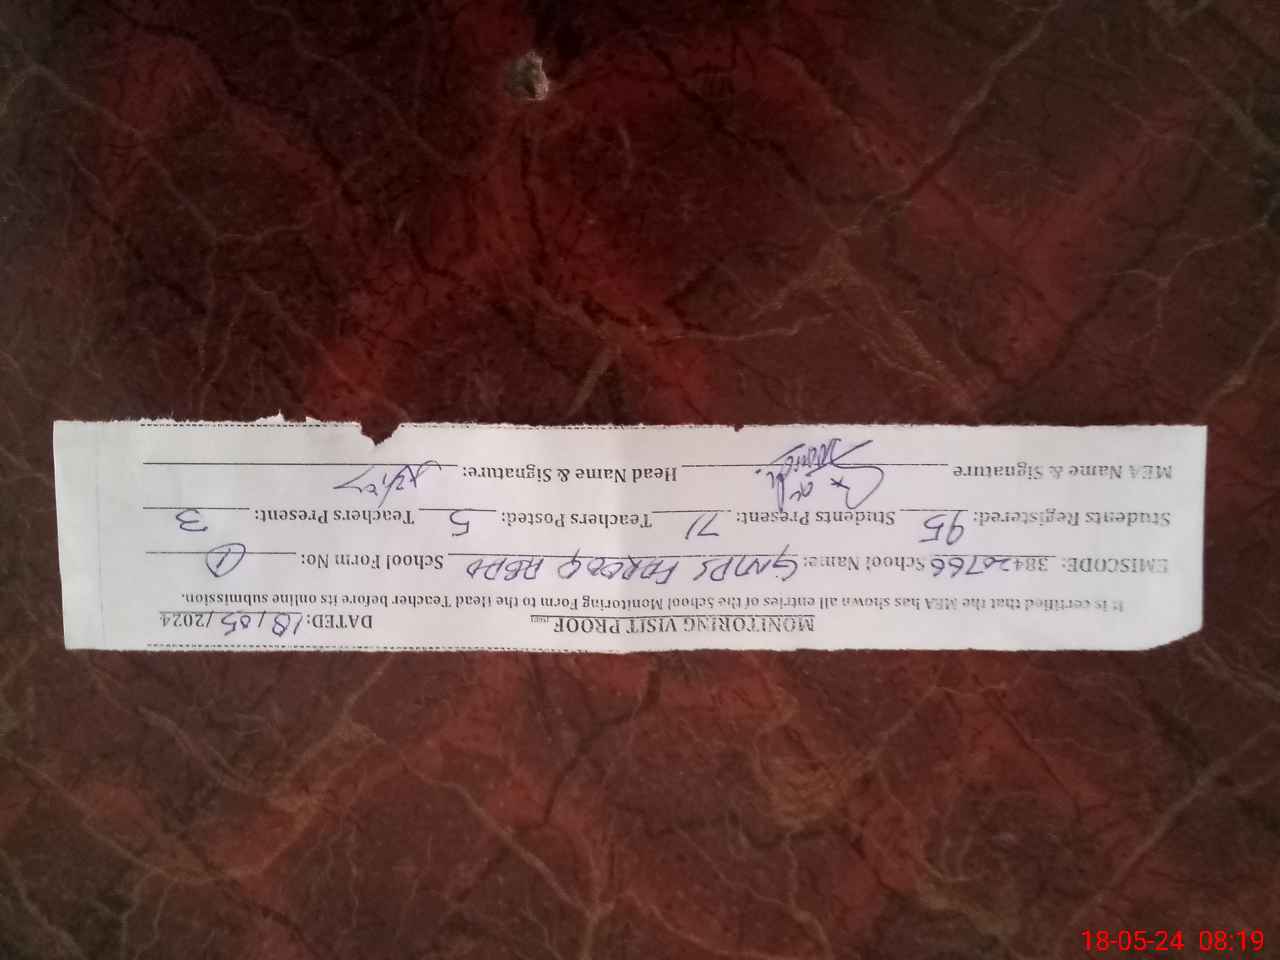 MONITORING VISIT PROOF DATED: 18/05/2024
It is certified that the MEA has shown all entries of the School Monitoring Form to the Head Teacher before its online submission.
EMISCODE: 38420766 School Name: GMPS FAROOQ ABAD School Form No: 1
Students Registered: 95 Students Present: 71 Teachers Posted: 5 Teachers Present: 3
MEA Name & Signature Head Name & Signature:
18-05-24 08:19